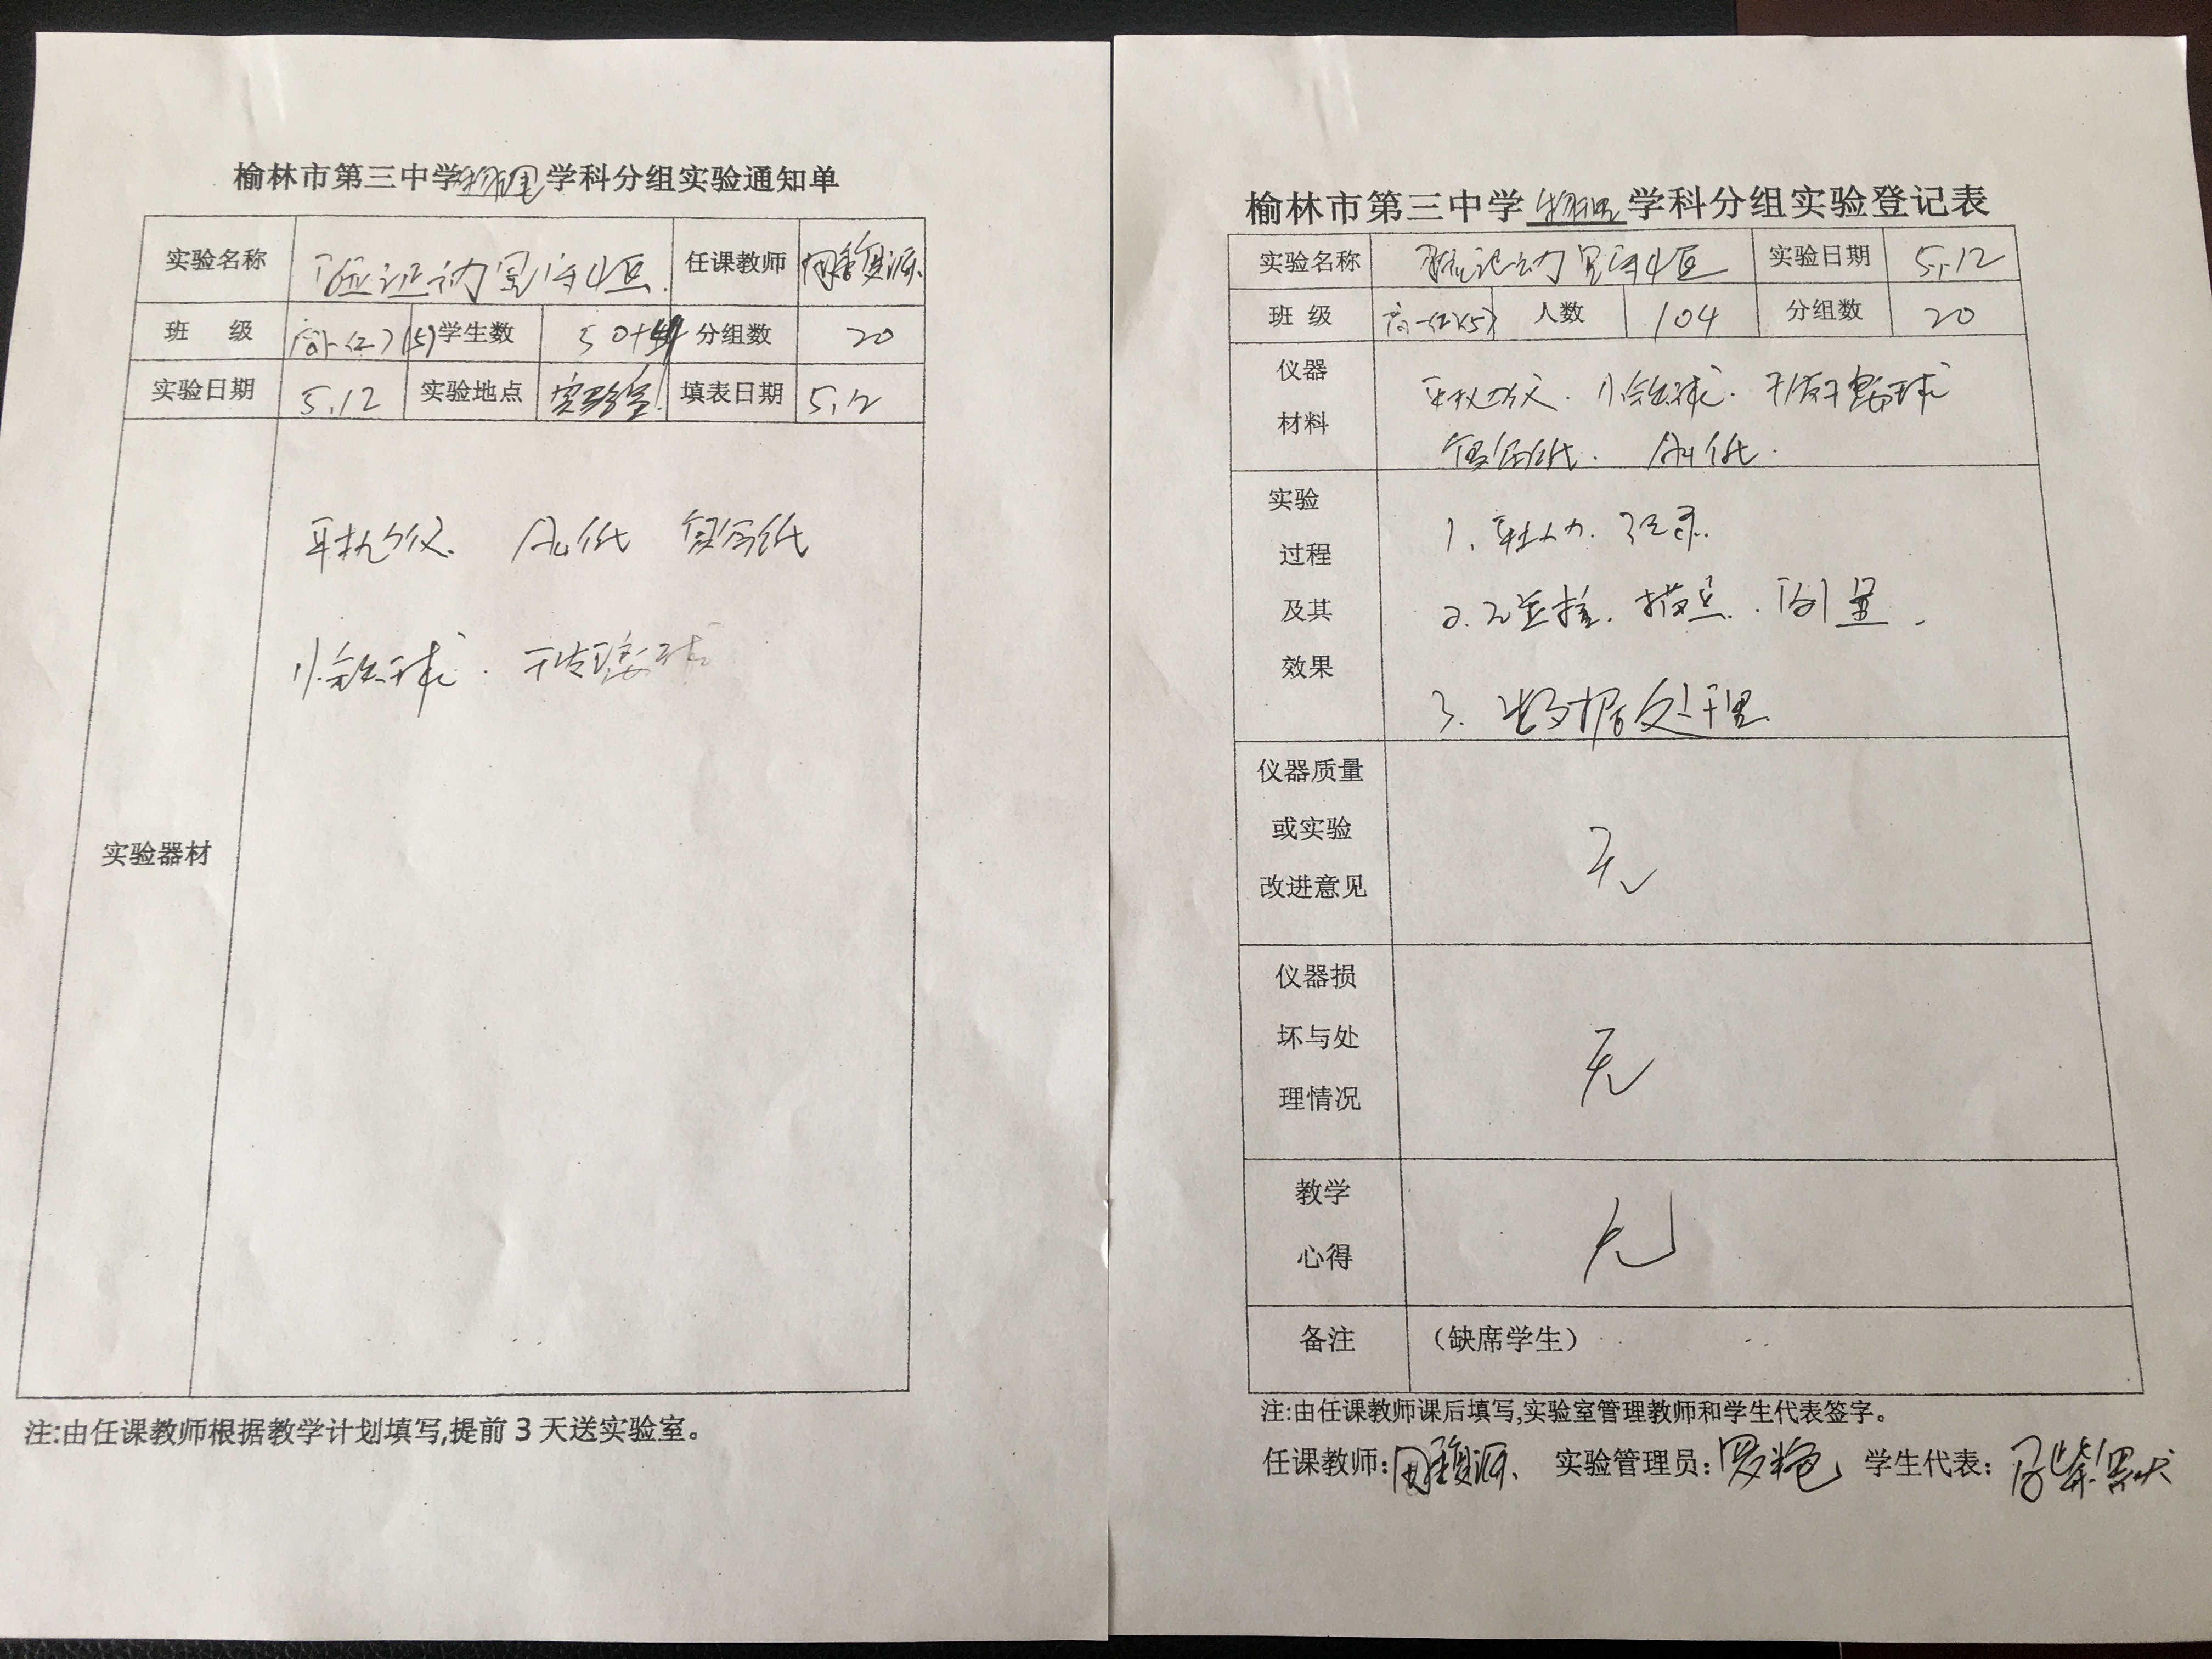 榆林市第三中学物理学科分组实验通知单
实验名称 验证动量守恒 任课教师
班 级 高一(2)(5) 学生数 50+54 分组数 20
实验日期 5.12 实验地点 实验室 填表日期 5.12
实验器材
平抛仪 A4纸 复写纸
小铁球 玻璃球
注:由任课教师根据教学计划填写,提前3天送实验室。
榆林市第三中学物理学科分组实验登记表
实验名称 验证动量守恒 实验日期 5.12
班 级 高一(2)(5) 人数 104 分组数 20
仪器
材料
平抛仪. 小铁球. 玻璃球
复写纸. A4纸.
实验
过程
及其
效果
1. 记录.
2. 描点. 测量.
3. 数据处理
仪器质量
或实验
改进意见
无
仪器损
坏与处
理情况
无
教学
心得
无
备注 (缺席学生)
注:由任课教师课后填写,实验室管理教师和学生代表签字。
任课教师: 实验管理员: 罗艳 学生代表: